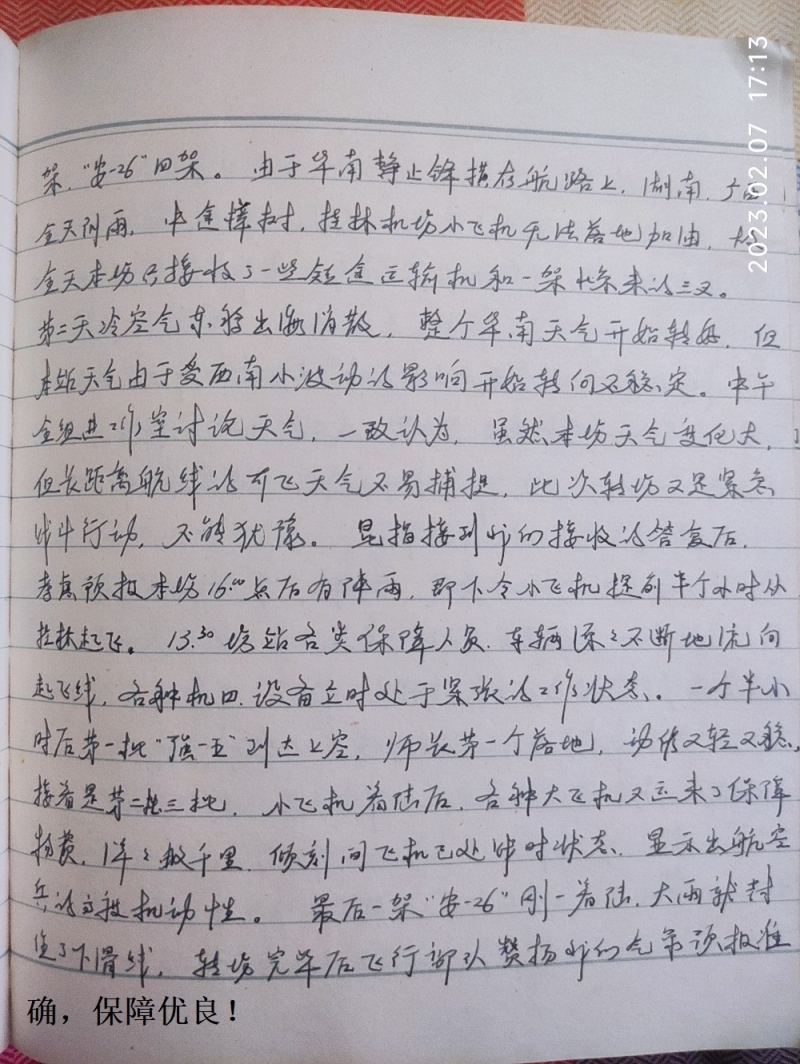 架，“安-26”四架。由于华南静止锋横在航路上，湖南、广西
全天阴雨，中途樟树、桂林机场小飞机无法落地加油，
全天本场只接收了一些短途运输机和一架 来的三叉。
第二天冷空气东移出海消散，整个华南天气开始转好，但
本站天气由于受西南小波动的影响开始转向不稳定。中午
全组进工作室讨论天气，一致认为，虽然本场天气变化大，
但长距离航线的可飞天气不易捕捉，此次转场又是紧急
战斗行动，不能犹豫。昆指接到我们接收的答复后，
考虑预报本场16:00点后有阵雨，即下令小飞机提前半个小时从
桂林起飞。13:30场站各类保障人员、车辆源々不断地流向
起飞线，各种机四、设备立时处于紧张的工作状态。一个半小
时后第一批“强-五”到达上空，师长第一个落地，动作又轻又稳，
接着是第二批三批，小飞机着陆后，各种大飞机又运来了保障
物资， 々数千里，倾刻间飞机已处战时状态，显示出航空
兵的高度机动性。最后一架“安-26”刚一着陆，大雨就封
住了下滑线，转场完毕后飞行部队赞扬我们气象预报准
确，保障优良！
2023.02.07 17:13